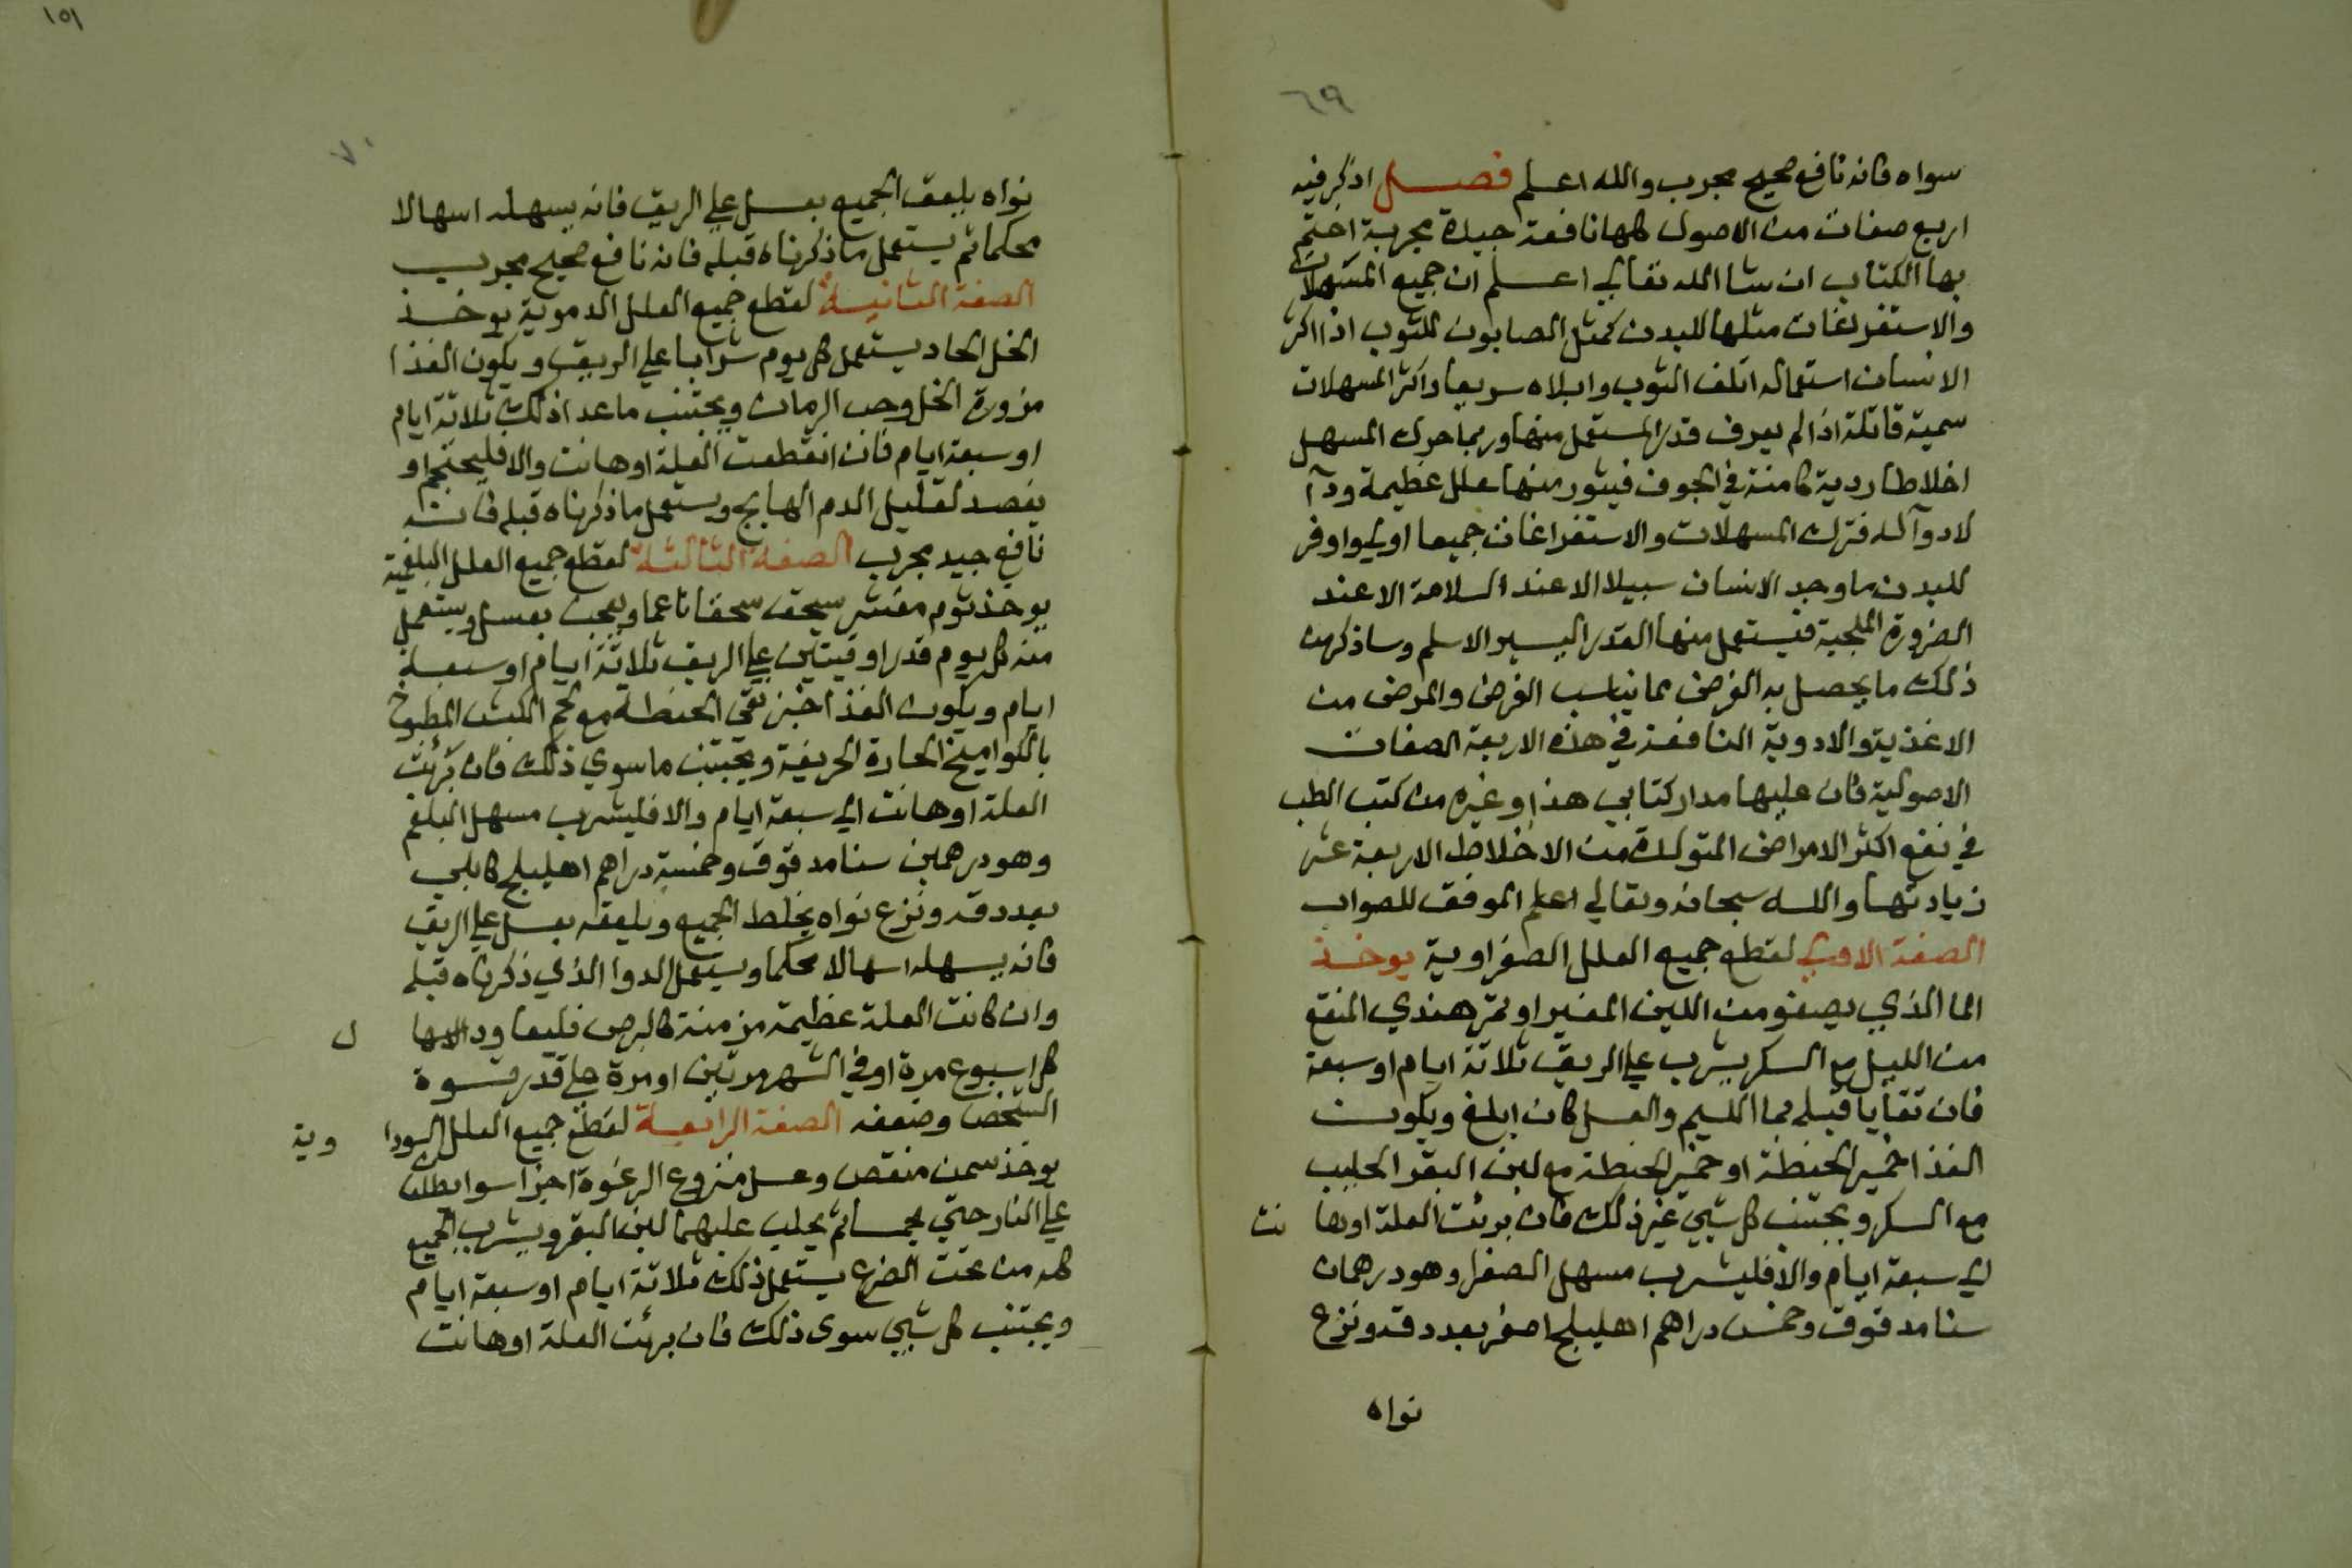 ٦٩
سواه فانه نافع صحيح مجرب والله اعلم فصل اذكر فيه
اربع صفات من الاصول كلها نافعة جيدة مجربة اختم
بها الكتاب ان شا الله تعالي اعلم ان جميع المسهلات
والاستفراغات مثلها للبدن كمثل الصابون للثوب اذا اكثر
الانسان استعماله اتلف الثوب وابلاه سريعا واكثر المسهلات
سمية قاتلة اذا لم يعرف قدر المستعمل منها وربما حرك المسهل
اخلاطا ردية كامنة في الجوف فيثور منها علل عظيمة ودآ
لا دوآ له فترك المسهلات والاستفراغات جميعا اولي واوفر
للبدن ما وجد الانسان سبيلا الا عند السلامة الا عند
الضرورة الملجية فيستعمل منها القدر اليسير الاسلم وساذكر من
ذلك ما يحصل به الغرض مما يناسب الغرض والمرض من
الاغذية والادوية النافعة في هذه الاربعة الصفات
الاصولية فان عليها مدار كتابي هذا وغيره من كتب الطب
في نفع اكثر الامراض المتولدة من الاخلاط الاربعة عند
زيادتها والله سبحانه وتعالي اعلم الموفق للصواب
الصفة الاولي لقطع جميع العلل الصفراوية يوخذ
الما الذي يصفو من اللبن المغير او تمر هندي المنقع
من الليل مع السكر يشرب علي الريق ثلاثة ايام او سبعة
فان تقايا قبله بما اللحيم والعسل كان ابلغ ويكون
الغذا خمير الحنطة او خبز الحنطة مع لبن البقر الحليب
مع السكر ويجتنب كل شيي غير ذلك فان برئت العلة اوها نت
الي سبعة ايام والا فليشرب مسهل الصفرا وهو درهمان
سنا مدقوق وخمس دراهم اهليلج اصفر بعد دقه ونزع
نواه
١٥١
٧٠
نواه يلعق الجميع بعسل علي الريق فانه يسهله اسهالا
محكما ثم يستعمل ما ذكرناه قبله فانه نافع صحيح مجرب
الصفة الثانية لقطع جميع العلل الدموية يوخذ
الخل الحاد يستعمل كل يوم شرابا علي الريق ويكون الغذا
مزورة الخل وحب الرمان ويجتنب ما عدا ذلك ثلاثة ايام
او سبعة ايام فان انقطعت العلة اوهانت والا فليحتجم او
يفصد لتقليل الدم الهايج ويستعمل ما ذكرناه قبله فانه
نافع جيد مجرب الصفة الثالثة لقطع جميع العلل البلغمية
يوخذ ثوم مقشر يسحق سحقا ناعما ويعجن بعسل ويستعمل
منه كل يوم قدر اوقيتين علي الريق ثلاثة ايام او سبعة
ايام ويكون الغذا خبز نقي الحنطة مع لحم الكبش المطبوخ
بالكواميخ الحارة الحريفة ويجتنب ما سوي ذلك فان برئت
العلة اوهانت الي سبعة ايام والا فليشرب مسهل البلغم
وهو درهمين سنا مدقوق وخمسة دراهم اهليلج كابلي
بعد دقه ونزع نواه يخلط الجميع ويلعقه بعسل علي الريق
فانه يسهله اسهالا محكما ويستعمل الدوا الذي ذكرناه قبله
وان كانت العلة عظيمة مزمنة كالبرص فليعاود الاسها ل
كل اسبوع مرة او في الشهر مرتين او مرة علي قدر قوة
الشخص وضعفه الصفة الرابعة لقطع جميع العلل السودا وية
يوخذ سمن منقص وعسل منزوع الرغوة اجزا سوا
علي النار حتي يحما ثم يحلب عليهما لبن البقر ويشرب الجميع
كله من تحت الضرع يستعمل ذلك ثلاثة ايام او سبعة ايام
ويجتنب كل شيي سوى ذلك فان برئت العلة اوهانت